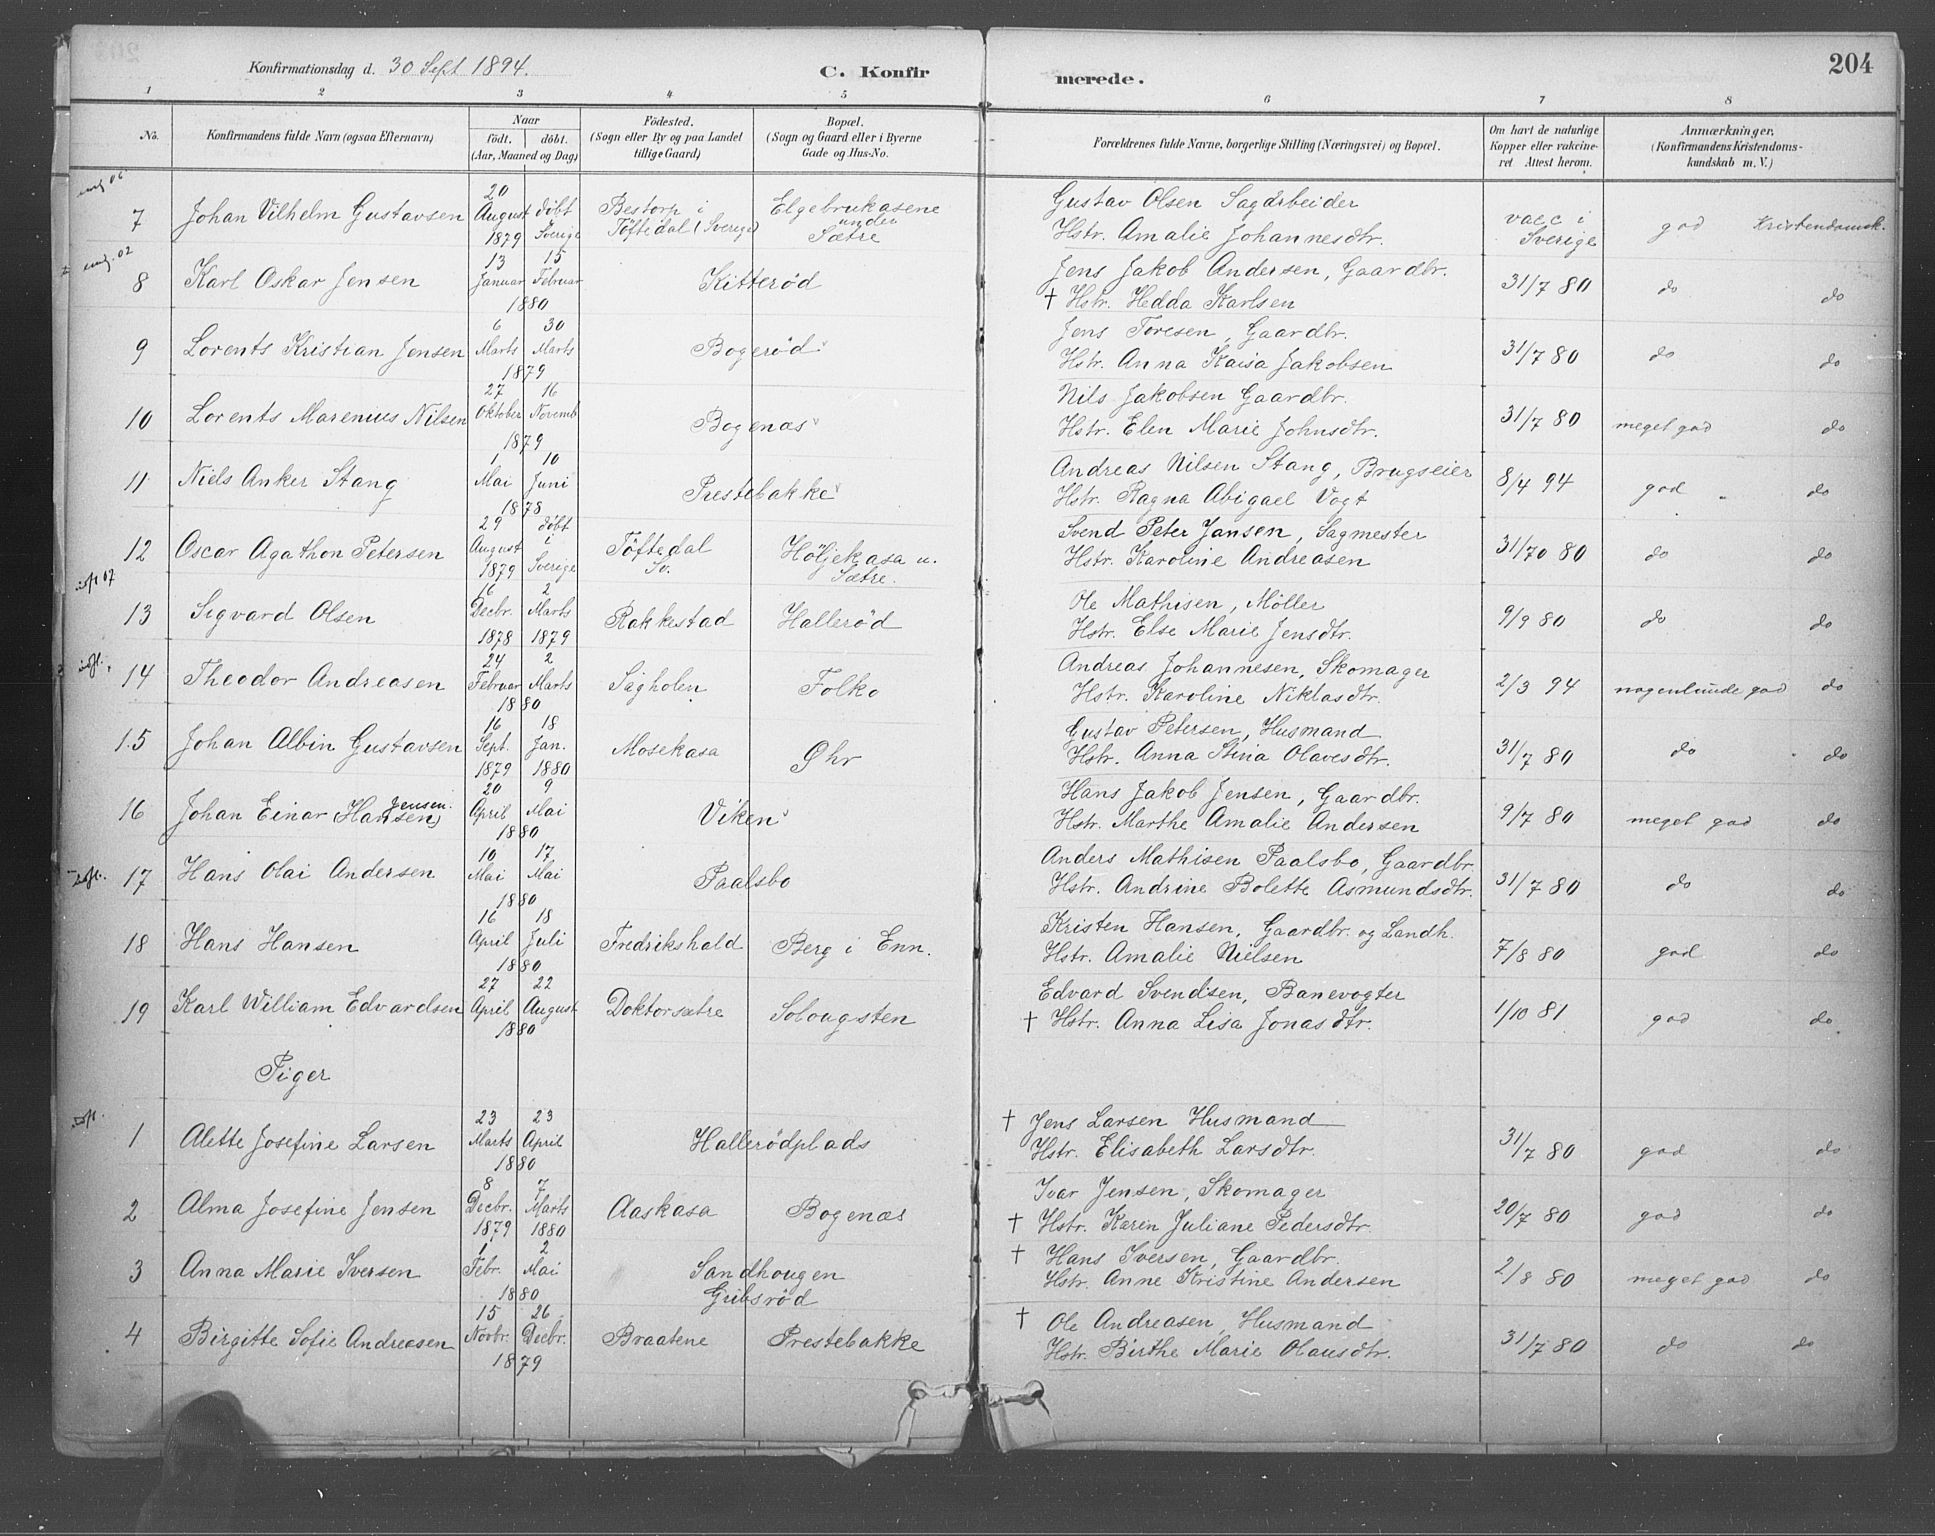 204
Konfirmationsdag d. 30 Sept 1894.
C. Konfirmerede.
1 2 3 4 5 6 7 8
No. Konfirmandens fulde Navn (ogsaa Efternavn) Naar födt. döbt. (Aar, Maaned og Dag) Födested. (Sogn eller By og paa Landet tillige Gaard) Bopæl. (Sogn og Gaard eller i Byerne Gade og Hus-No. Forældrenes fulde Navne, borgerlige Stilling (Næringsvei) og Bopæl. Om havt de naturlige Kopper eller vakcineret Attest herom. Anmærkninger. (Konfirmandens Kristendomskundskab m. V.)
7 Johan Vilhelm Gustavsen 20 August 1879 døbt Sverige Bestorp i Töftedal (Sverige) Elgebrukasene under Sætre Gustav Olsen Sagarbeider Hstr. Amalie Johannesdtr. vacc i Sverige god Kristendomsk.
8 Karl Oskar Jensen 13 Januar 15 Februar 1880 Kitteröd Jens Jakob Andersen, Gaardbr. † Hstr. Hedda Karlsen 31/7 80 do do
9 Lorents Kristian Jensen 6 Marts 30 Marts 1879 Bogeröd Jens Toresen, Gaardbr. Hstr. Anna Kaisa Jakobsen 31/7 80 do do
10 Lorents Marenius Nilsen 27 Oktober 16 Novemb 1879 Bogenæs Nils Jakobsen Gaardbr. Hstr. Elen Marie Johnsdtr. 31/7 80 meget god do
11 Niels Anker Stang 1 Mai 10 Juni 1878 Prestebakke Andreas Nilsen Stang, Brugseier Hstr. Ragna Abigael Vogt 8/4 94 god do
12 Oscar Agathon Petersen 29 August 1879 døbt i Sverige Töftedal Sv. Höljekasa u. Sætre. Svend Peter Jansen, Sagmester Hstr. Karoline Andreasen 31/70 80 do do
13 Sigvard Olsen 16 Decbr. 1878 2 Marts 1879 Rakkestad Halleröd Ole Mathisen, Møller Hstr. Else Marie Jensdtr. 9/9 80 do do
14 Theodor Andreasen 24 Februar 2 Marts 1880 Sagholen Folko Andreas Johannesen, Skomager Hstr. Karoline Niklasdtr. 2/3 94 nogenlunde god do
15 Johan Albin Gustavsen 16 Sept. 1879 18 Jan. 1880 Mosekasa Øhr Gustav Petersen, Husmand Hstr. Anna Stina Olavesdtr. 31/7 80 do do
16 Johan Einar (Hansen) Jensen. 20 April 9 Mai 1880 Viken Hans Jakob Jensen, Gaardbr. Hstr. Marthe Amalie Andersen 9/7 80 meget god do
17 Hans Olai Andersen 10 Mai 17 Mai 1880 Paalsbo Anders Mathisen Paalsbo, Gaardbr Hstr. Andrine Bolette Asmundsdtr. 31/7 80 do do
18 Hans Hansen 16 April 18 Juli 1880 Fredrikshald Berg i Enn. Kristen Hansen, Gaardbr. og Landh. Hstr. Amalie Nielsen 7/8 80 god do
19 Karl William Edvardsen 27 April 22 August 1880 Doktorsætre Solougsten Edvard Svendsen, Banevogter † Hstr. Anna Lisa Jonasdtr. 1/10 81 god do
Piger
1 Alette Josefine Larsen 23 Marts 23 April 1880 Hallerödplads † Jens Larsen Husmand Hstr. Elisabeth Larsdtr. 31/7 80 god do
2 Alma Josefine Jensen 8 Decbr. 1879 7 Marts 1880 Aaskasa Bogenæs Ivar Jensen, Skomager † Hstr. Karin Juliane Pedersdtr. 20/7 80 god do
3 Anna Marie Iversen 1 Febr. 2 Mai 1880 Sandhougen Gribsröd † Hans Iversen, Gaardbr. Hstr. Anne Kristine Andersen 2/8 80 meget god do
4 Birgitte Sofie Andreasen 15 Novbr. 26 Decbr. 1879 Braatene Prestebakke † Ole Andreasen, Husmand Hstr. Birthe Marie Olausdtr. 31/7 80 do do